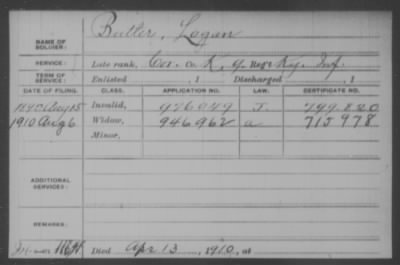 Butler, Logan
NAME OF SOLDIER:
SERVICE: Late rank, Co. K, 9 Reg't Ky. Inf.
TERM OF SERVICE: Enlisted , 1 Discharged , 1
DATE OF FILING. CLASS. APPLICATION NO. LAW. CERTIFICATE NO.
1890 Aug 15 Invalid, J. 799.820
1910 Aug 6 Widow, 946962 a 715978
Minor,
ADDITIONAL SERVICES:
REMARKS:
Died Apr 13, 1910, at